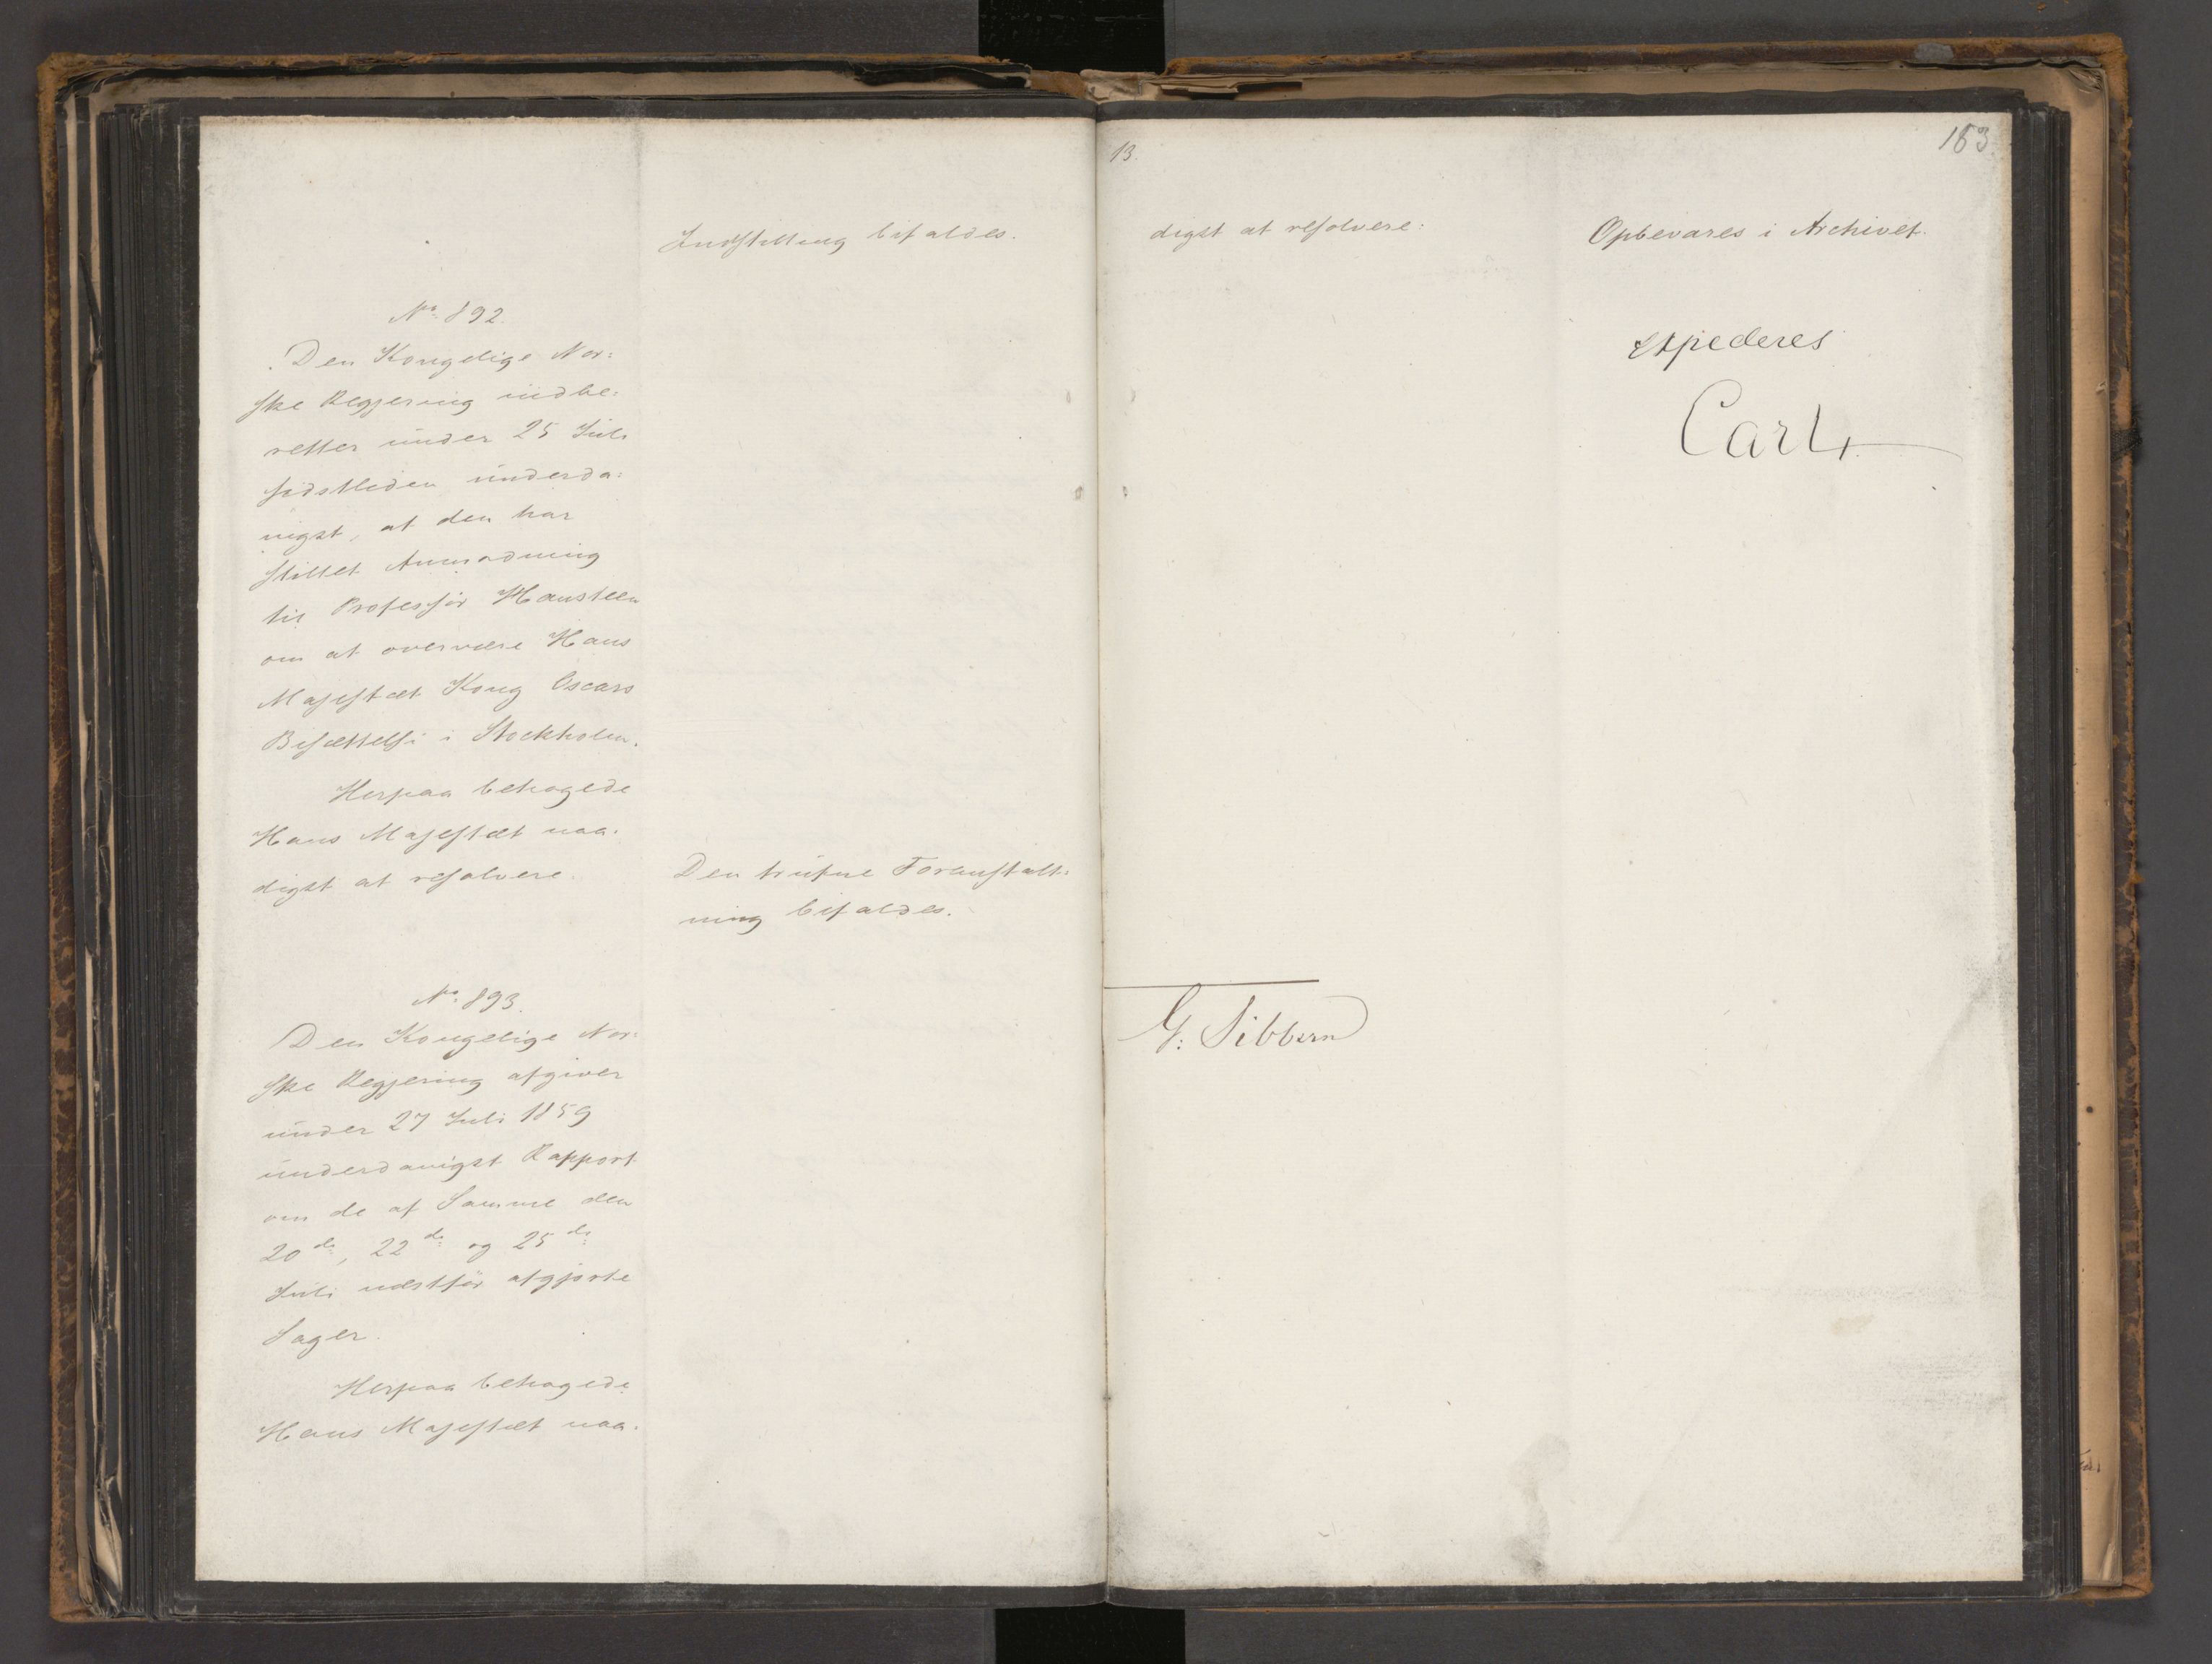 Indstilling bifaldes.
No. 892.
Den Kongelige Nor:
ske Regjering indbe:
retter under 25 Juli
sidstleden underda:
nigst, at den har
stillet Anmodning
til Professor Hansteen
om at overvære Hans
Majestæt Kong Oscars
Bisættelse i Stockholm.
Herpaa behagede
Hans Majestæt naa:
digst at resolvere.
Den trufne Foranstalt:
ning bifaldes.
No. 893.
Den Kongelige Nor:
ske Regjering afgiver
under 27 Juli 1859
underdanigst Rapport
om de af Samme den
20de, 22de og 25de
Juli næstfør afgjorte
Sager.
Herpaa behagede
Hans Majestæt naa:
13.
163.
digst at resolvere:
Opbevares i Archivet.
Expederes
Carl
G. Sibbern